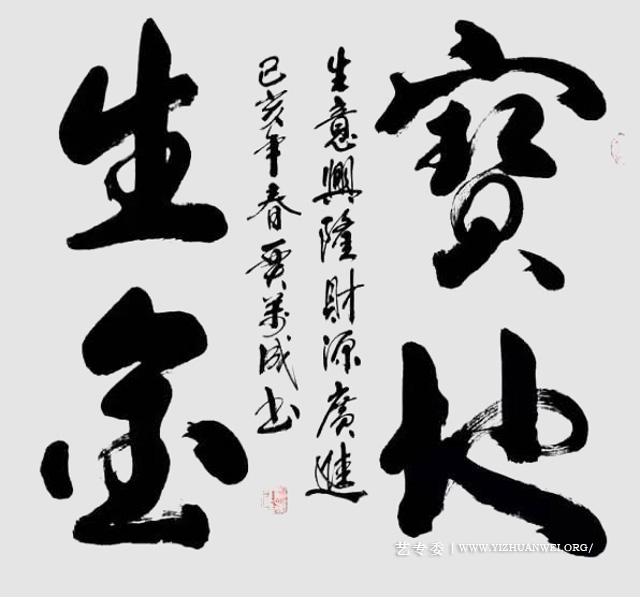 寶地
生金
生意興隆財源廣進
己亥年春賈萬成书
艺专委 | WWW.YIZHUANWEI.ORG/